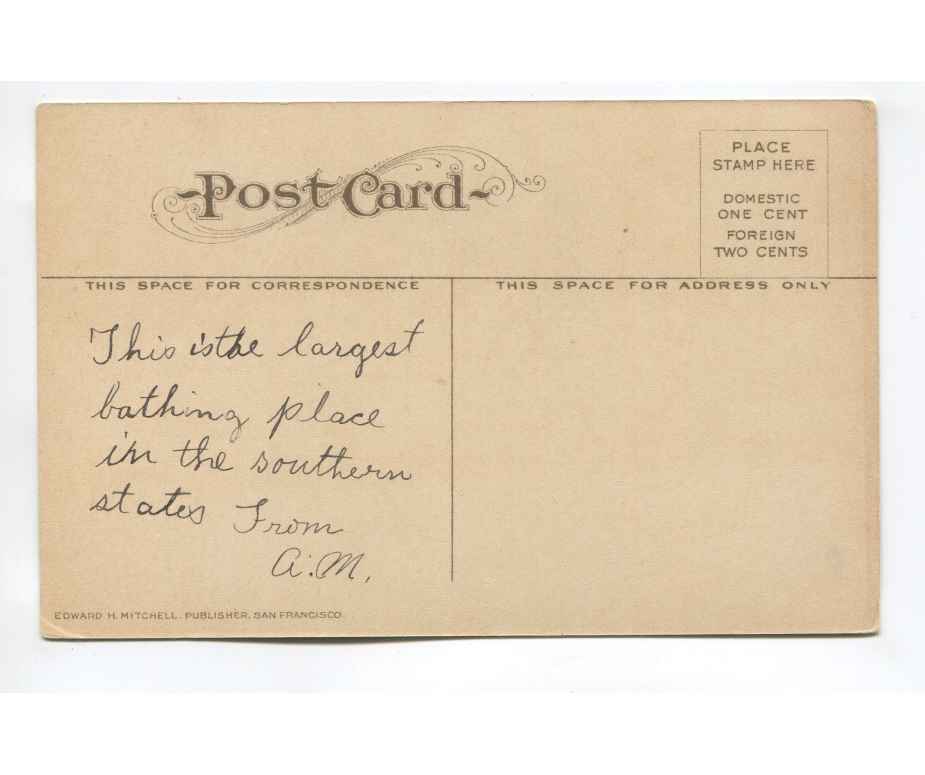 Post Card
PLACE
STAMP HERE
DOMESTIC
ONE CENT
FOREIGN
TWO CENTS
THIS SPACE FOR CORRESPONDENCE
THIS SPACE FOR ADDRESS ONLY
This is the largest
bathing place
in the southern
states From
A. M.
EDWARD H. MITCHELL, PUBLISHER, SAN FRANCISCO.